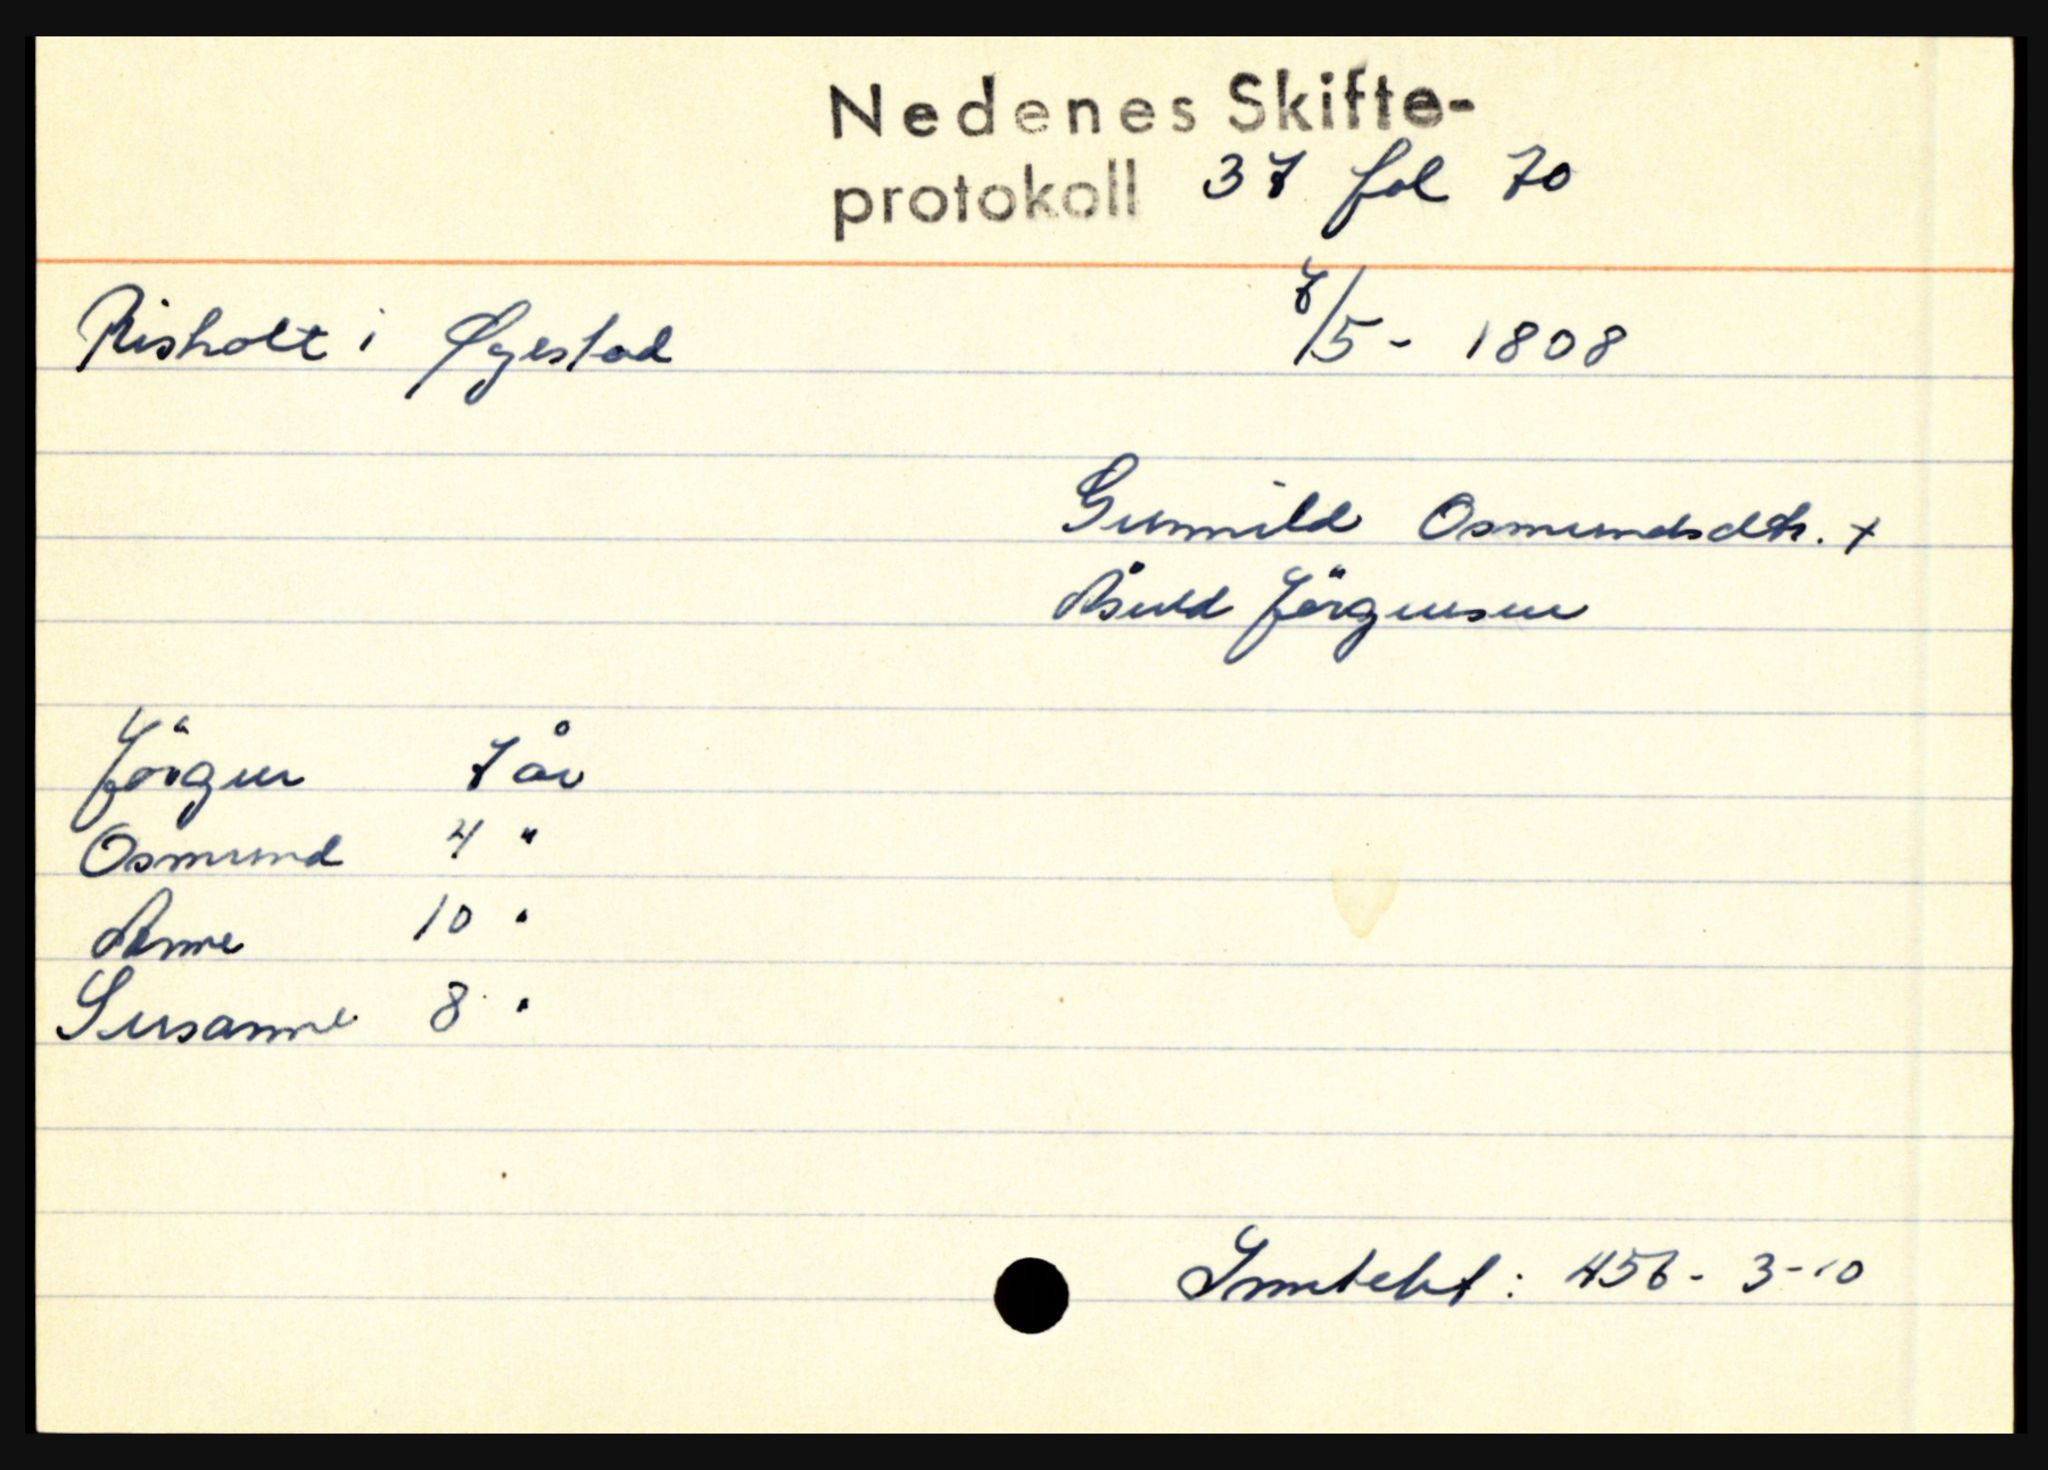 Nedenes Skifte-
protokoll 37 fol 70
Risholt i Øyestad 7/5 - 1808
Gunnild Osmundsdtr. +
Asuld Jörgensen
Jörgen 7 år
Osmund 4 "
Anne 10 "
Susanne 8 "
Inntekt: 456 - 3 - 10